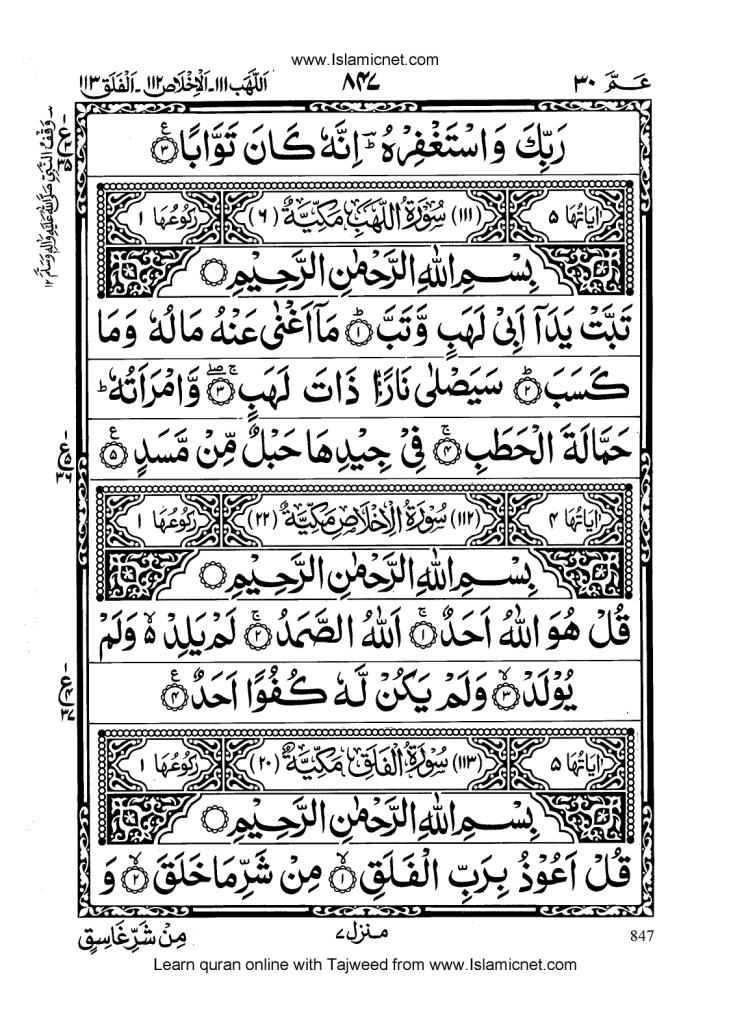 www.Islamicnet.com
عـم ٣٠
٨٤٧
اللّهب ١١١۔ الاخلاص ١١٢۔ الفلق ١١٣
رَبِّكَ وَاسْتَغْفِرْهُ ؕ اِنَّهٗ كَانَ تَوَّابًا ۝٣ ع
وقف النبی صلی اللہ علیہ والہ وسلم ١٢
اٰيَاتُهَا ٥ (١١١) سُوْرَةُ اللَّهَبِ مَكِّيَّةٌ (٦) رُكُوْعُهَا ١
بِسْمِ اللّٰهِ الرَّحْمٰنِ الرَّحِيْمِ ۝
تَبَّتْ يَدَاۤ اَبِيْ لَهَبٍ وَّتَبَّ ۝١ؕ مَاۤ اَغْنٰى عَنْهُ مَالُهٗ وَمَا
كَسَبَ ۝٢ؕ سَيَصْلٰى نَارًا ذَاتَ لَهَبٍ ۝٣ۚۖ وَّامْرَاَتُهٗ ؕ
حَمَّالَةَ الْحَطَبِ ۝٤ۚ فِيْ جِيْدِهَا حَبْلٌ مِّنْ مَّسَدٍ ۝٥ ع
اٰيَاتُهَا ٤ (١١٢) سُوْرَةُ الْاِخْلَاصِ مَكِّيَّةٌ (٢٢) رُكُوْعُهَا ١
بِسْمِ اللّٰهِ الرَّحْمٰنِ الرَّحِيْمِ ۝
قُلْ هُوَ اللّٰهُ اَحَدٌ ۝١ۚ اَللّٰهُ الصَّمَدُ ۝٢ۚ لَمْ يَلِدْ ۙ۬ وَلَمْ
يُوْلَدْ ۝٣ۙ وَلَمْ يَكُنْ لَّهٗ كُفُوًا اَحَدٌ ۝٤ ع
اٰيَاتُهَا ٥ (١١٣) سُوْرَةُ الْفَلَقِ مَكِّيَّةٌ (٢٠) رُكُوْعُهَا ١
بِسْمِ اللّٰهِ الرَّحْمٰنِ الرَّحِيْمِ ۝
قُلْ اَعُوْذُ بِرَبِّ الْفَلَقِ ۝١ۙ مِنْ شَرِّ مَا خَلَقَ ۝٢ۙ وَ
847
منزل ٧
مِنْ شَرِّ غَاسِقٍ
Learn quran online with Tajweed from www.Islamicnet.com